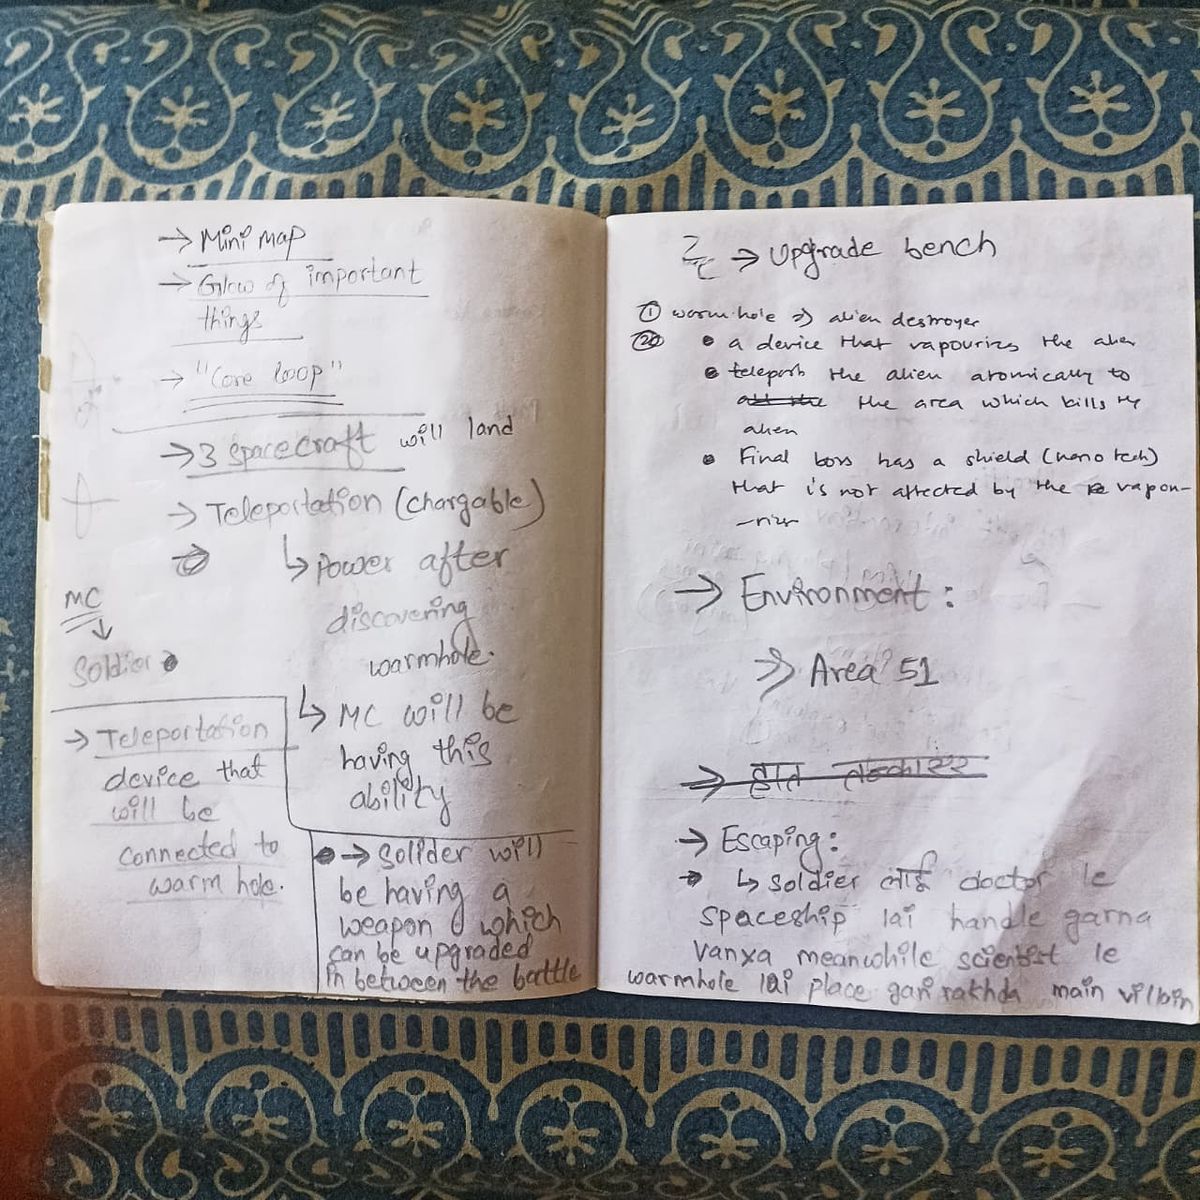 → Mini map
→ Glow of important
things
→ "Core loop"
→ 3 spacecraft will land
→ Teleportation (chargable)
↳ Power after
discovering
warmhole.
MC
Soldier
↳ MC will be
having this
ability
→ Teleportation
device that
will be
connected to
warm hole.
→ Solider will
be having a
weapon which
can be upgraded
in between the battle
→ Upgrade bench
① warm hole ⇒ alien destroyer
• a device that vapourizes the alien
• teleports the alien atomically to
the area which kills the
alien
• Final boss has a shield (nano tech)
that is not affected by the vapou-
-rizer
→ Environment :
⇒ Area 51
→ Escaping :
↳ soldier लाई doctor le
spaceship lai handle garna
vanxa meanwhile scientist le
warmhole lai place gari rakhda main villain